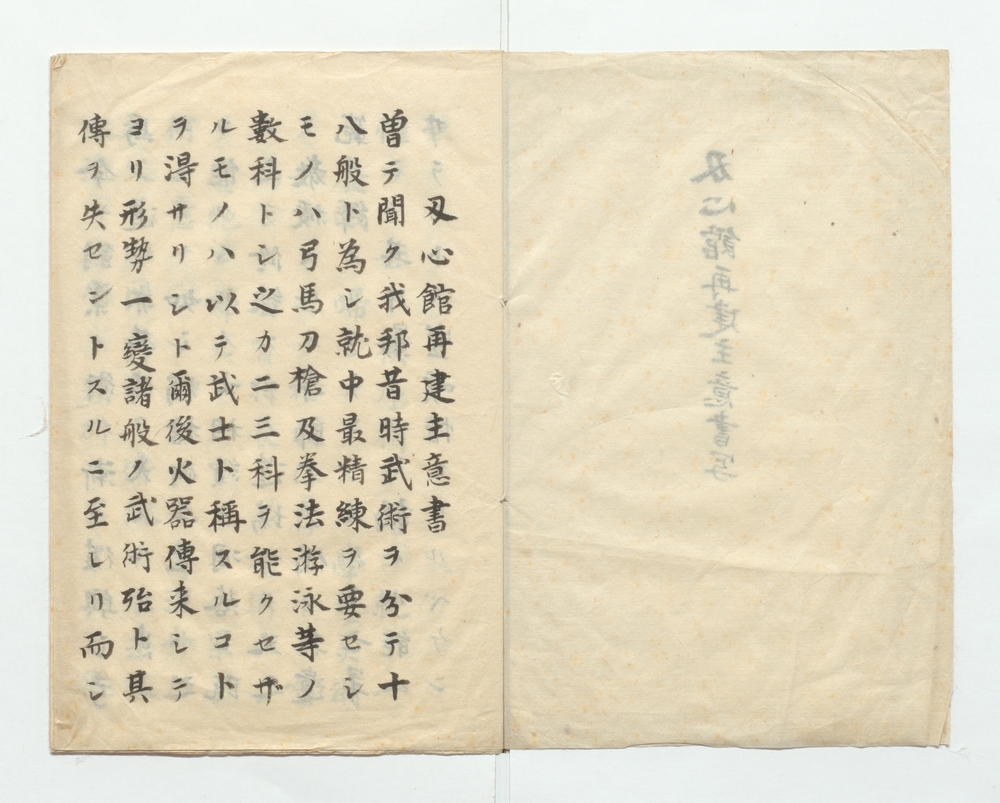 刄心館再建主意書写
刄心館再建主意書
曽テ聞ク我邦昔時武術ヲ分テ十
八般ト為シ就中最精練ヲ要セシ
モノハ弓馬刀槍及拳法游泳等ノ
數科トシ之カ二三科ヲ能クセザ
ルモノハ以テ武士ト稱スルコト
ヲ淂サリシト爾後火器傳来シテ
ヨリ形勢一變諸般ノ武術殆ト其
傳ヲ失セントスルニ至レリ而シ